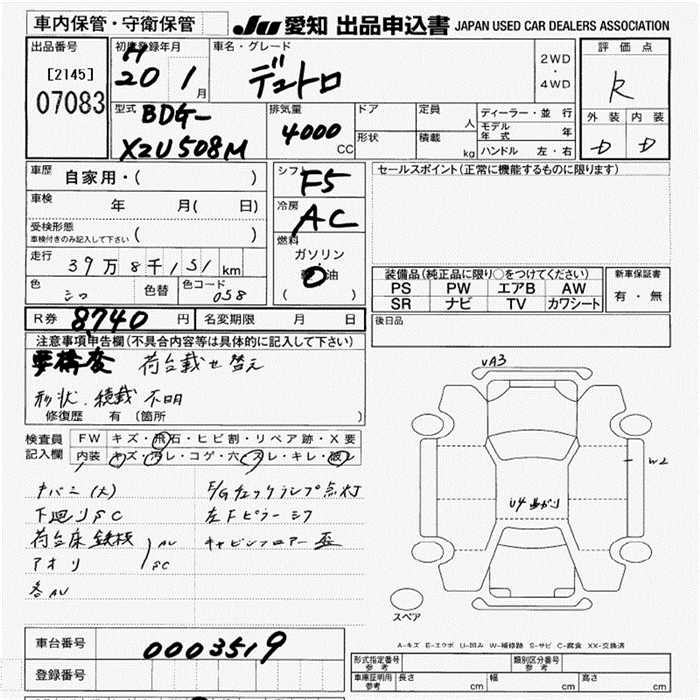 車内保管・守衛保管 JU 愛知 出品申込書 JAPAN USED CAR DEALERS ASSOCIATION
出品番号 初度登録年月 車名・グレード 評価点
[2145] H 20 1月 デュトロ 2WD・4WD R
07083
型式 BDG- 排気量 ドア 定員 人 ディーラー・並行 外装 内装
XZU508M 4000CC 形状 積載 kg モデル年式 年 D D
ハンドル 左・右
車歴 自家用・( ) シフト F5 セールスポイント(正常に機能するものに限ります)
車検 年 月( 日) 冷房 AC
受検形態 ( )
車検付きのみ記入して下さい
燃料 ガソリン
走行 39万8千151km 油
( )
色 シロ 色替 色コード 058
装備品(純正品に限り○をつけてください) 新車保証書
PS PW エアB AW 有・無
SR ナビ TV カワシート
R券 8,740円 名変期限 月 日 後日品
注意事項申告欄(不具合内容等は具体的に記入して下さい)
要構変 荷台載せ替え
形状、積載 不明
修復歴 有 (箇所 )
UA3
検査員 FW キズ・飛石・ヒビ割・リペア跡・X要
記入欄 内装 キズ・汚レ・コゲ・穴・スレ・キレ・破レ
W2
E/Gチェックランプ点灯
下廻りSC 左Fピラーシフ
荷台床鉄板 AU キャビンフロアー
アオリ SC
各AU
U4 曲がり
スペア
車台番号 0003519
A-キズ E-エクボ U-凹み W-補修跡 S-サビ C-腐食 XX-交換済
登録番号
型式指定番号 参考 類別区分番号 参考
車庫証明用 参考 長さ cm 幅 cm 高さ cm